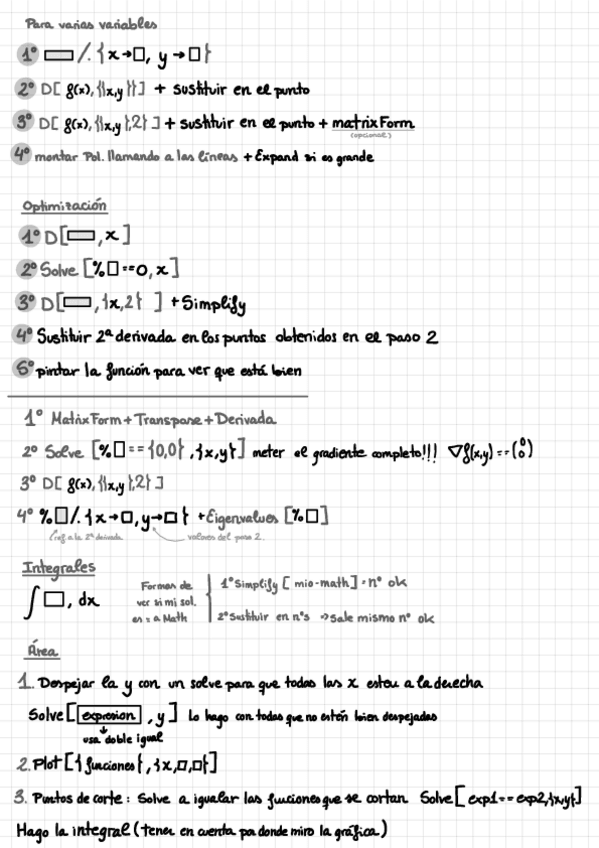 Para varias variables
1º ▭ /. {x→□, y→□}
2º D[ f(x), {{x,y}}] + sustituir en el punto
3º D[ f(x), {{x,y},2}] + sustituir en el punto + matrixForm
(opcional)
4º montar Pol. llamando a las líneas + Expand si es grande
Optimización
1º D[▭, x]
2º Solve [%□==0, x]
3º D[▭, {x,2} ] + Simplify
4º Sustituir 2ª derivada en los puntos obtenidos en el paso 2
5º pintar la función para ver que está bien
1º MatrixForm + Transpose + Derivada
2º Solve [%□=={0,0}, {x,y}] meter el gradiente completo!!! ∇f(x,y)==(0 0)
3º D[ f(x), {{x,y},2}]
4º %□/. {x→□, y→□} + Eigenvalues [%□]
(ref a la 2ª derivada valores del paso 2.
Integrales
∫□, dx
Formas de
ver si mi sol.
es = a Math
1º Simplify [ mio-math] = nº ok
2º Sustituir en nºs ⇒ Sale mismo nº ok
Área
1. Despejar la y con un solve para que todas las x esten a la derecha
Solve [expresion, y] Lo hago con todas que no estén bien despejadas
usa doble igual
2. Plot [{funciones}, {x,□,□}]
3. Puntos de corte: Solve a igualar las funciones que se cortan Solve [exp1==exp2,{x,y}]
Hago la integral (tener en cuenta por donde miro la gráfica)